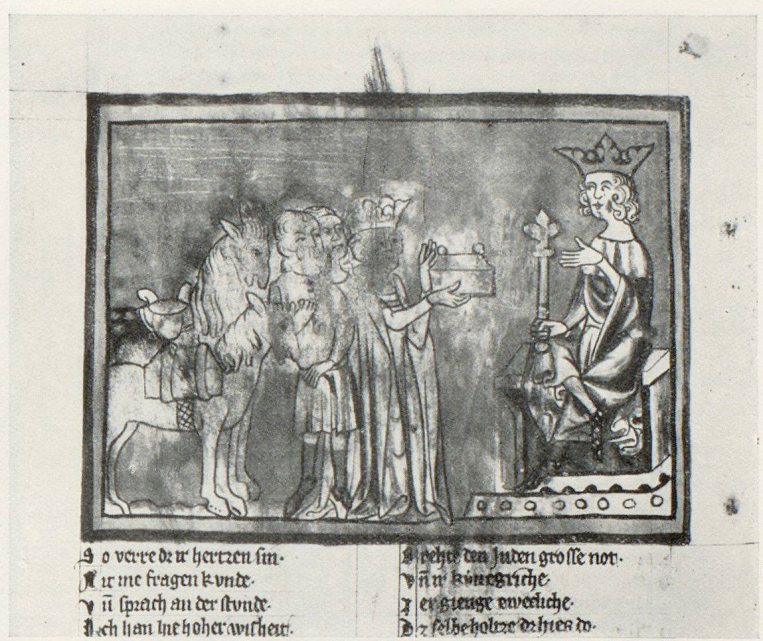 So verre dz ir hertzen sin·
Nit me fragen kvnde·
Vñ sprach an der stvnde·
Ich han hie hoher wisheit·
Brehte den Juden grosse not·
Vñ ir kvnegriche·
Zergienge ewecliche·
Dz selbe holtze dz hies do·